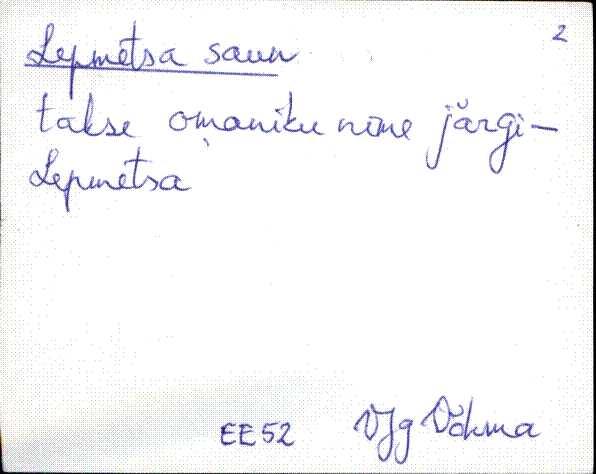 2
Lepmetsa saun
takse omaniku nime järgi —
Lepmetsa
EE52 VJg Võhma